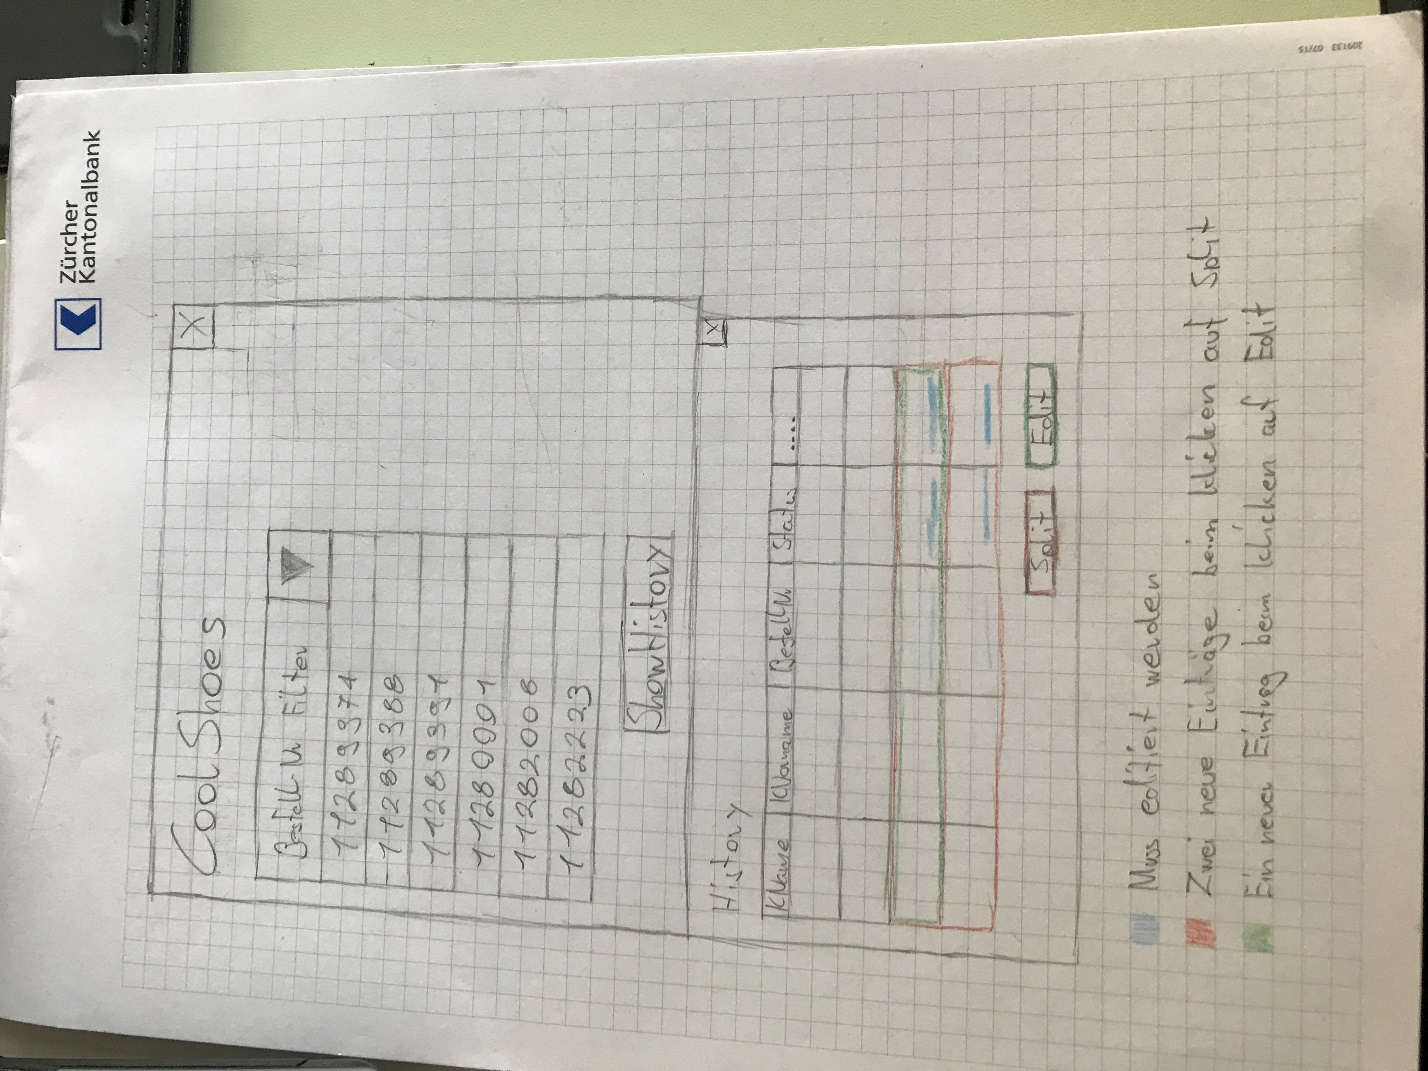 Zürcher
Kantonalbank
X
Cool Shoes
Bestell Nr Filter
11289374
11289388
11289391
11280001
1182006
1182223
ShowHistory
X
History
KName KVorname BestellNr Status ....
Split Edit
Muss editiert werden
Zwei neue Einträge beim klicken auf Split
Ein neuer Eintrag beim klicken auf Edit
209133 07/15